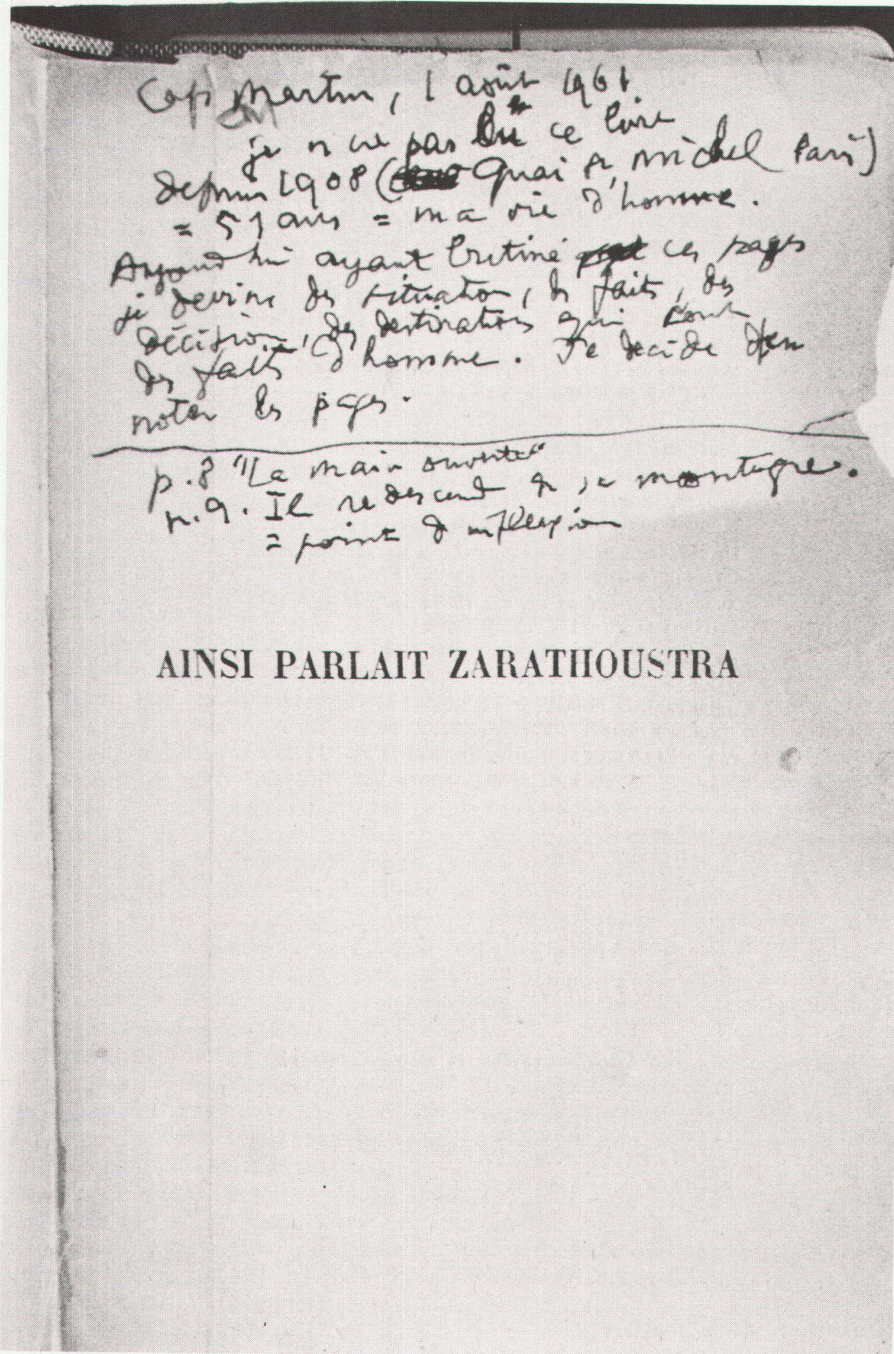 Cap Martin, 1 août 1961
je n'ai pas lu ce livre
depuis 1908 (Quai St Michel Paris)
= 51 ans = ma vie d'homme.
Aujourd'hui ayant butiné ces pages
je devine des situations, des faits, des
décisions, des destinations qui sont
des faits d'homme. Je décide d'en
noter les pages.
p.8 "La main ouverte"
p.9. Il redescend de sa montagne.
= point d'inflexion
AINSI PARLAIT ZARATHOUSTRA